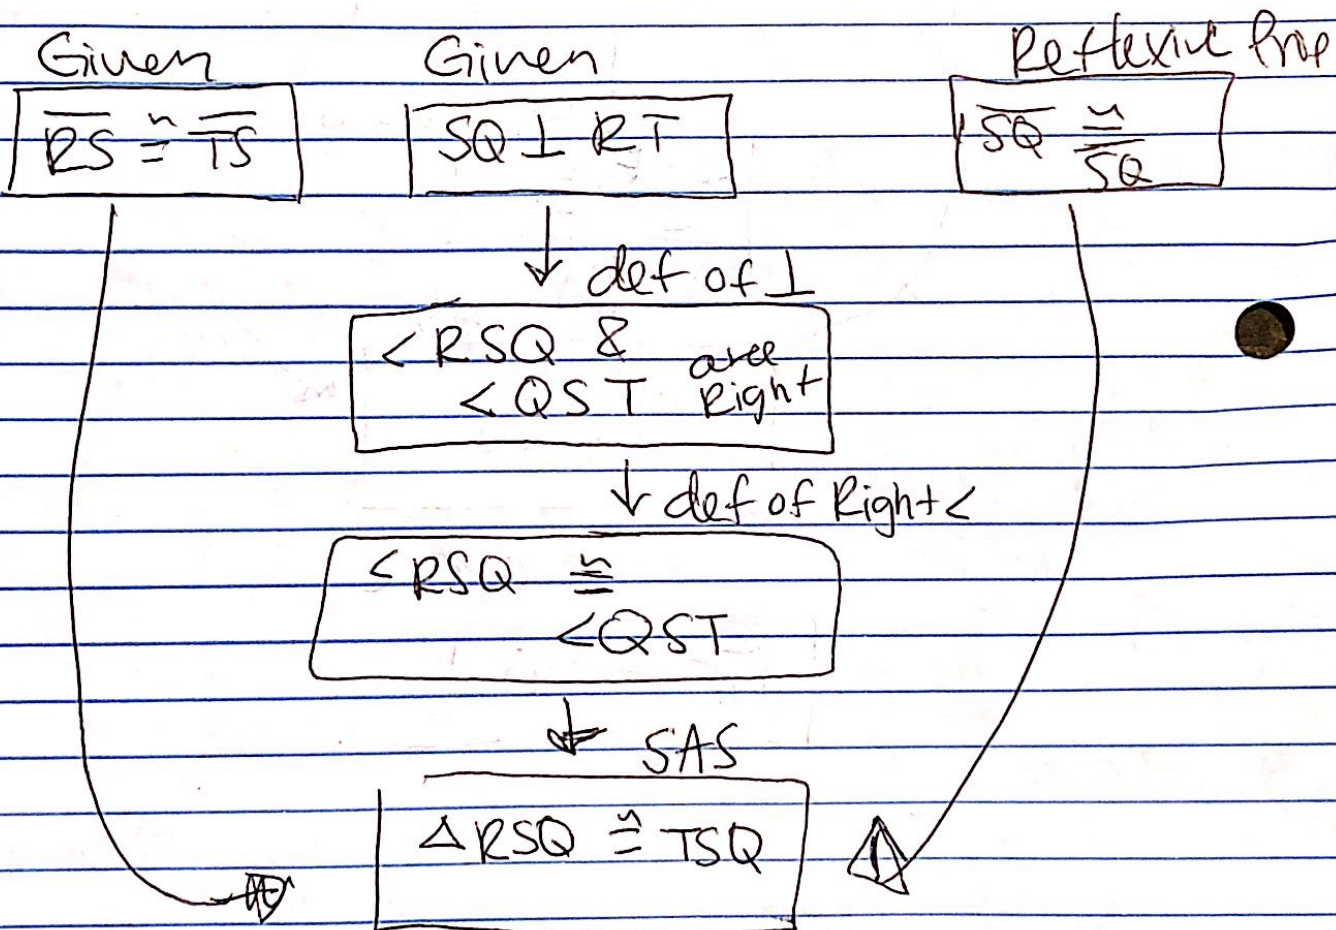 Given
RS ≅ TS
Given
SQ ⊥ RT
Reflexive Prop
SQ ≅
SQ
def of ⊥
< RSQ & are
< QST Right
def of Right <
< RSQ ≅
< QST
SAS
△ RSQ ≅ TSQ